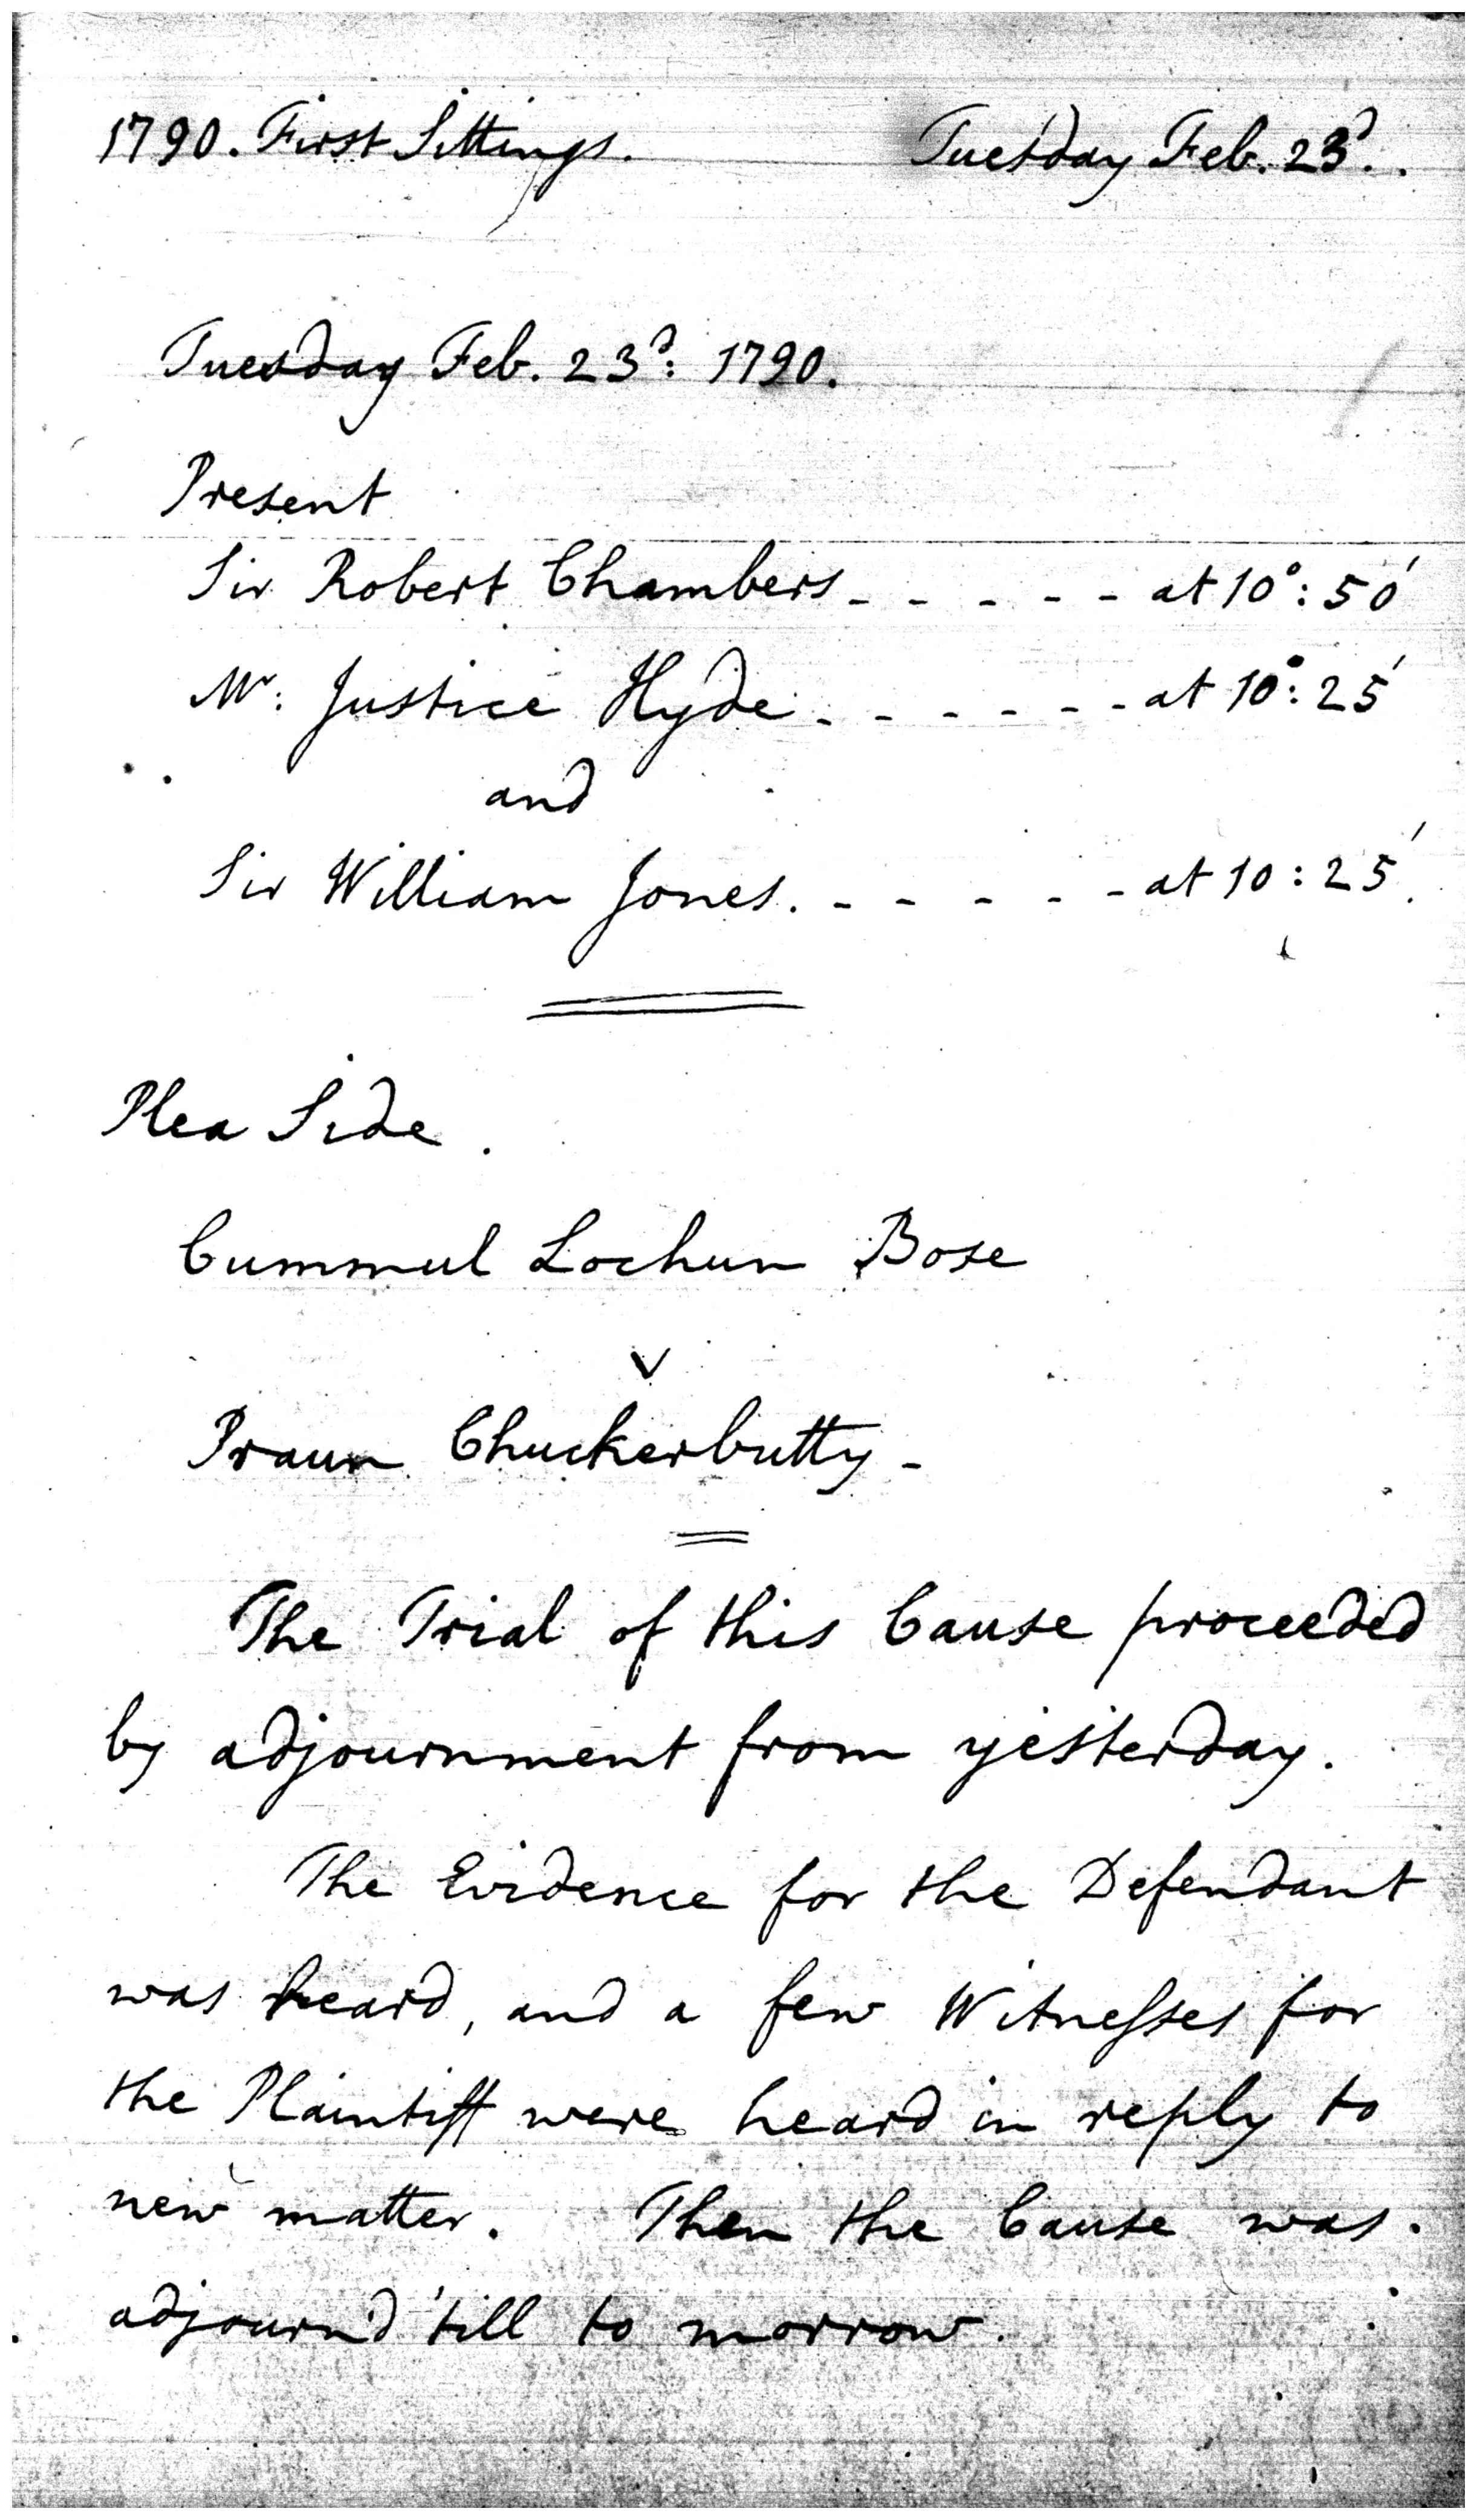 1790. First Sittings. Tuesday Feb. 23d.
Tuesday Feb. 23d: 1790.
Present
Sir Robert Chambers - - - - - at 10°: 50'
Mr: Justice Hyde - - - - - - at 10°: 25'
and
Sir William Jones. - - - - - at 10: 25'.
Plea Side.
Cummul Lochun Bose
v
Praun Chuckerbutty -
The Trial of this Cause proceeded
by adjournment from yesterday.
The Evidence for the Defendant
was heard, and a few Witneſses for
the Plaintiff were heard in reply to
new matter. Then the Cause was
adjourn'd 'till to morrow.